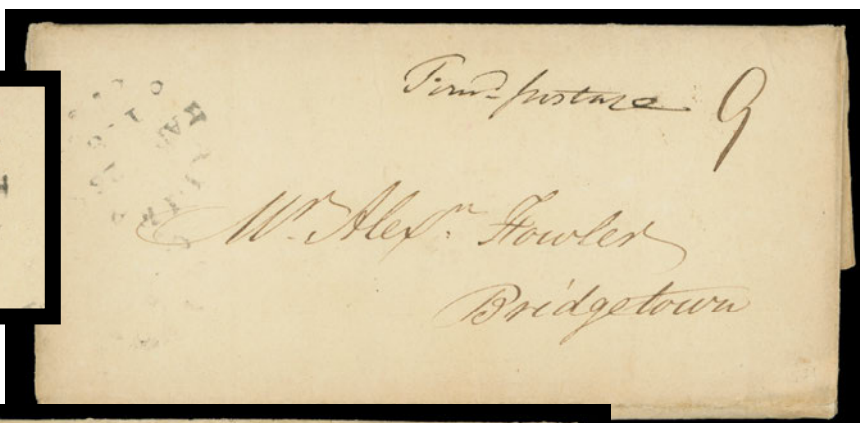 postage 9
Mr. Alexr. Fowler
Bridgetown